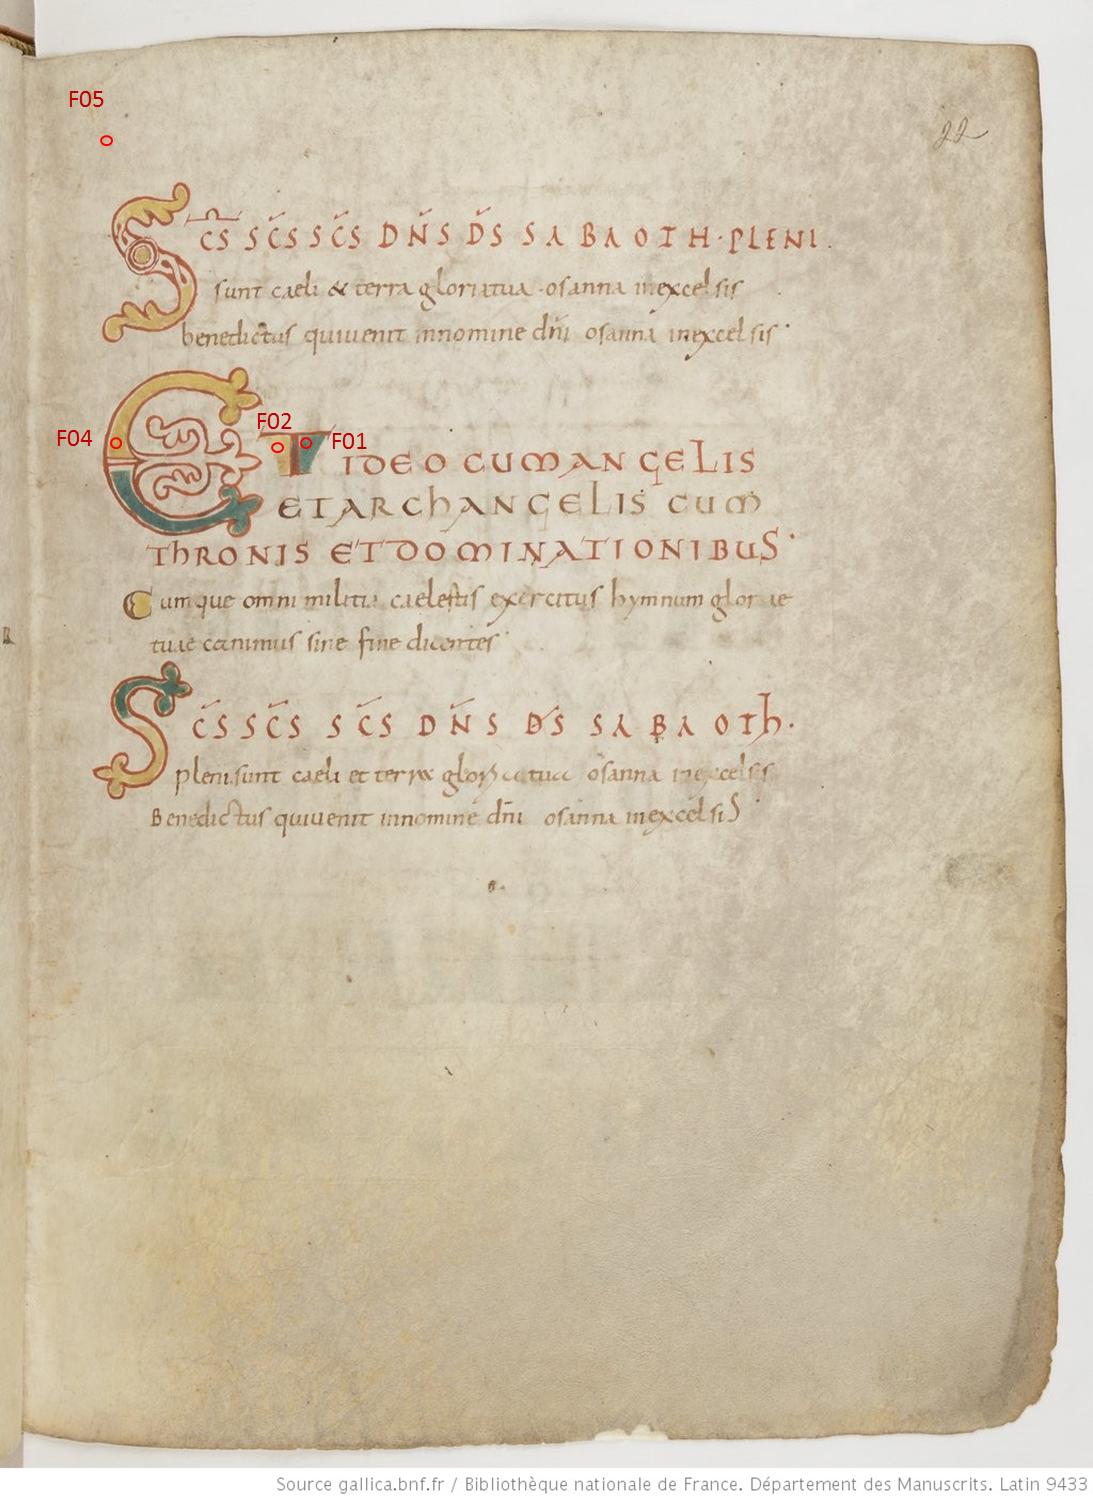 F05
22
SC̄S SC̄S SC̄S DN̄S D̄S SABAOTH · PLENI
sunt caeli & terra gloria tua · osanna inexcelsis
benedictus quiuenit innomine dn̄i osanna inexcelsis
F04 F02 F01
ET IDEO CUM ANGELIS
ET ARCHANGELIS CUM
THRONIS ET DOMINATIONIBUS
Cumque omni militia caelestis exercitus hymnum gloriae
tuae canimus sine fine dicentes
SC̄S SC̄S SC̄S DN̄S D̄S SABAOTh.
pleni sunt caeli et terra gloria tua osanna inexcelsis
Benedictus quiuenit innomine dn̄i osanna inexcelsis
Source gallica.bnf.fr / Bibliothèque nationale de France. Département des Manuscrits. Latin 9433